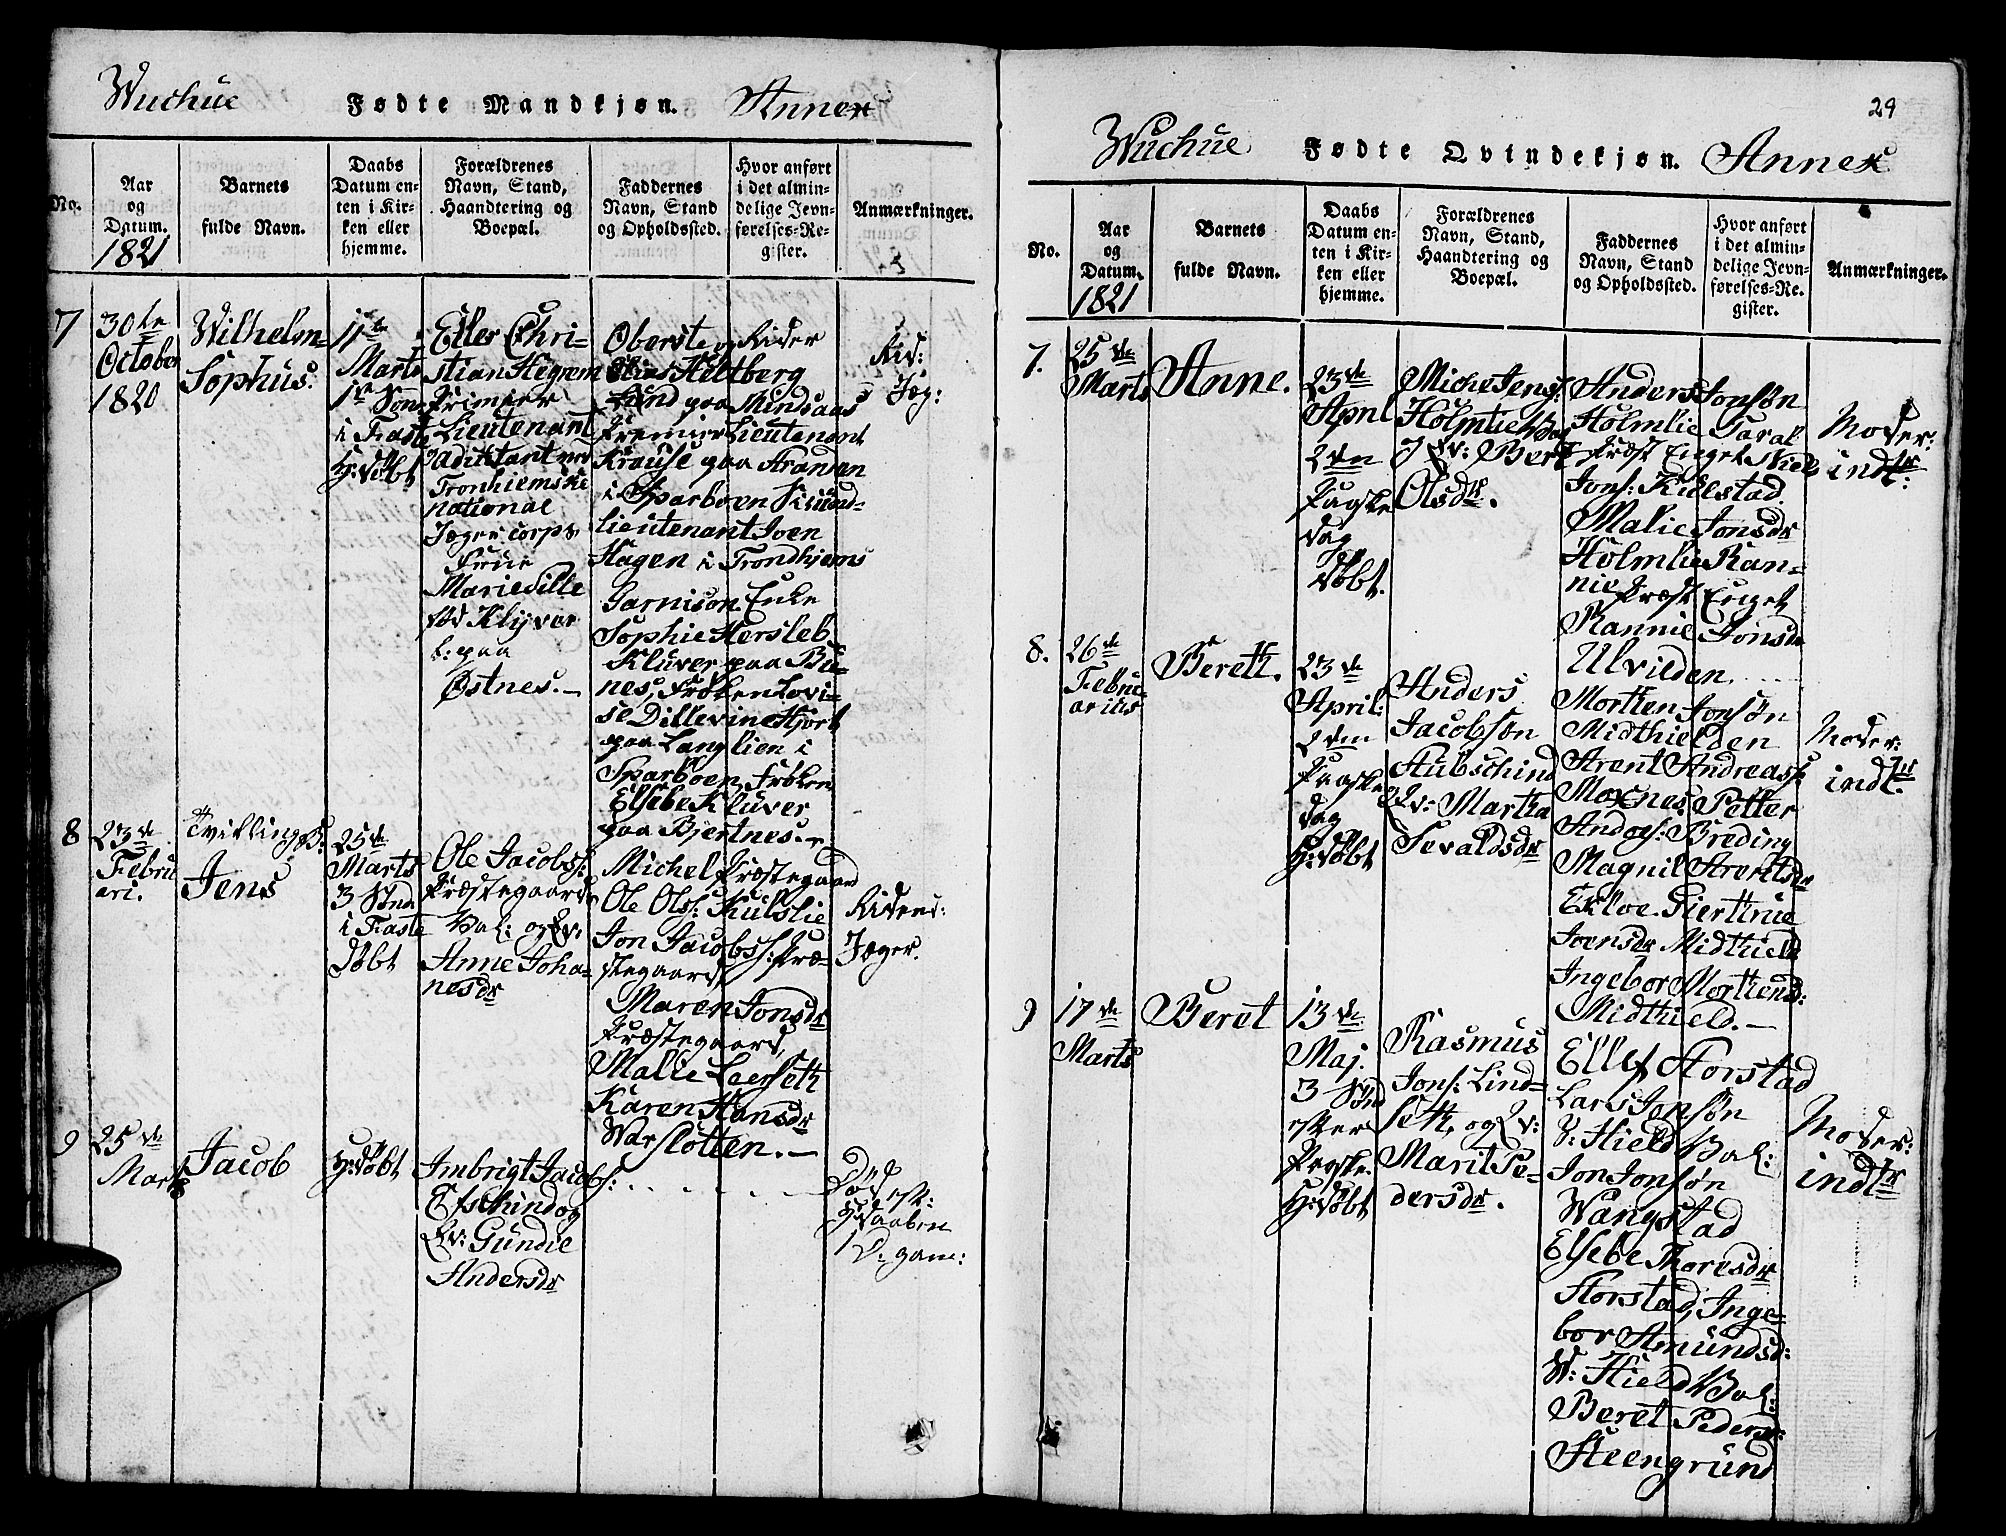 Wuchue Fødte Mandkjøn. Annex
No.
Aar
og
Datum.
1821
Barnets
fulde Navn.
Daabs
Datum en-
ten i Kir-
ken eller
hjemme.
Forældrenes
Navn, Stand,
Haandtering og
Boepæl.
Faddernes
Navn, Stand
og Opholdssted.
Hvor anført
i det almin-
delige Jevn-
førelses-Re-
gister.
Anmærkninger.
7
30te
October
1820
Wilhelm
Sophus.
11te
Marts
1te Søn
i Faste
H: døbt
Eller Chri-
stian Hegrem
Primier
Lieutenant
Aditktant ved
Tronhiemske
national
Jæger corps
Frue
Marie Sille
Klyver
b: paa
Østnes.
Oberste og Rider
Heltberg
Lund paa Mindsaas
Premier Lieutenant
Krause paa Tranan
i Sparboen Secund-
lieutenant Joen
Hagen i Trondhjems
Garnison. Enke
Sophie Hersleb
Kluver paa Bü-
nes, Frøken Lovi-
se Dillevine Hjort
paa Langlien i
Sparboen, Frøken
Elsebe Kluver
paa Bjertnes.
Rid:
Jæg:
8
23de
Febru
ari.
Tvilling B:
Jens
25de
Marts
3 Sønd
i Faste
døbt
Ole Jacobs:
Præstegaards
Val: og Qv:
Anne Joha-
nesdr
Michel Præstegaard
Ole Ols: Kulslie
Jon Jacobs: Præ-
stegaard
Maren Jonsdr
Præstegaard,
Malie Leerseth
Karen Hansdr
Warslotten.
Ridend:
Jæger.
9
25de
Marts
Jacob
H: døbt
Imbrigt Jacobs:
Efschind og
Qv: Gundie
Andersdr
Død
eft:
H daaben
1 D: gam:
29
Wuchue Fødte Qvindekjøn. Annex
No.
Aar
og
Datum.
1821
Barnets
fulde Navn.
Daabs
Datum en-
ten i Kir-
ken eller
hjemme.
Forældrenes
Navn, Stand,
Haandtering og
Boepæl.
Faddernes
Navn, Stand
og Opholdssted.
Hvor anført
i det almin-
delige Jevn-
førelses-Re-
gister.
Anmærkninger.
7.
25de
Marts
Anne.
23de
April
2den
Paaske
dag
døbt.
Miche Jens:
Holmlie Val
Qv: Bert
Olsdr.
Anders Jonsøn
Holmlie Taral
Præst Enget Niels
Jons: Killestad
Malie Jonsdr
Holmlie Ran-
nie Præst Enget
Rannie Jonsdr
Ulvilden
Moder:
indtr:
8.
26de
Febru-
arius
Bereth.
23de
April:
2den
Paaske
dag
H: døbt
Anders
Jacobsøn
Aübschind
Qv: Martha
Sevaldsdr
Morthen Jonsøn
Midthielden
Arent Andreass:
Moxnes, Petter
Andors: Breding
Magnil Arentsdr
Ekloe. Giertrue
Joensdr Midthield
Ingebor Morthensd:
Midthield.
Moder:
indtr.
9
17de
Marts
Beret
13de
Maj.
3 Sønd
efter
Paaske.
H: døbt
Rasmus
Jons: Lind-
seth, og Qv:
Marit Pe-
dersdr.
Ellef Storstad
Lars Jonsøn
V: Hield Val:
Jon Jonsøn
Wangstad
Elsebe Thoresdr
Storstad, Inge-
bor Amundsd:
W: Hield Val:
Beret Pedersd:
Steengrund
Moder:
indtr